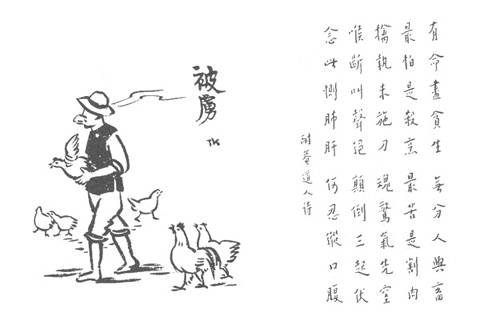 有命盡貪生 無分人與畜
最怕是殺烹 最苦是割肉
擒執未施刀 魂驚氣先窒
喉斷叫聲絕 顛倒三起伏
念此惻肺肝 何忍縱口腹
耐菴道人詩
被虜
TK